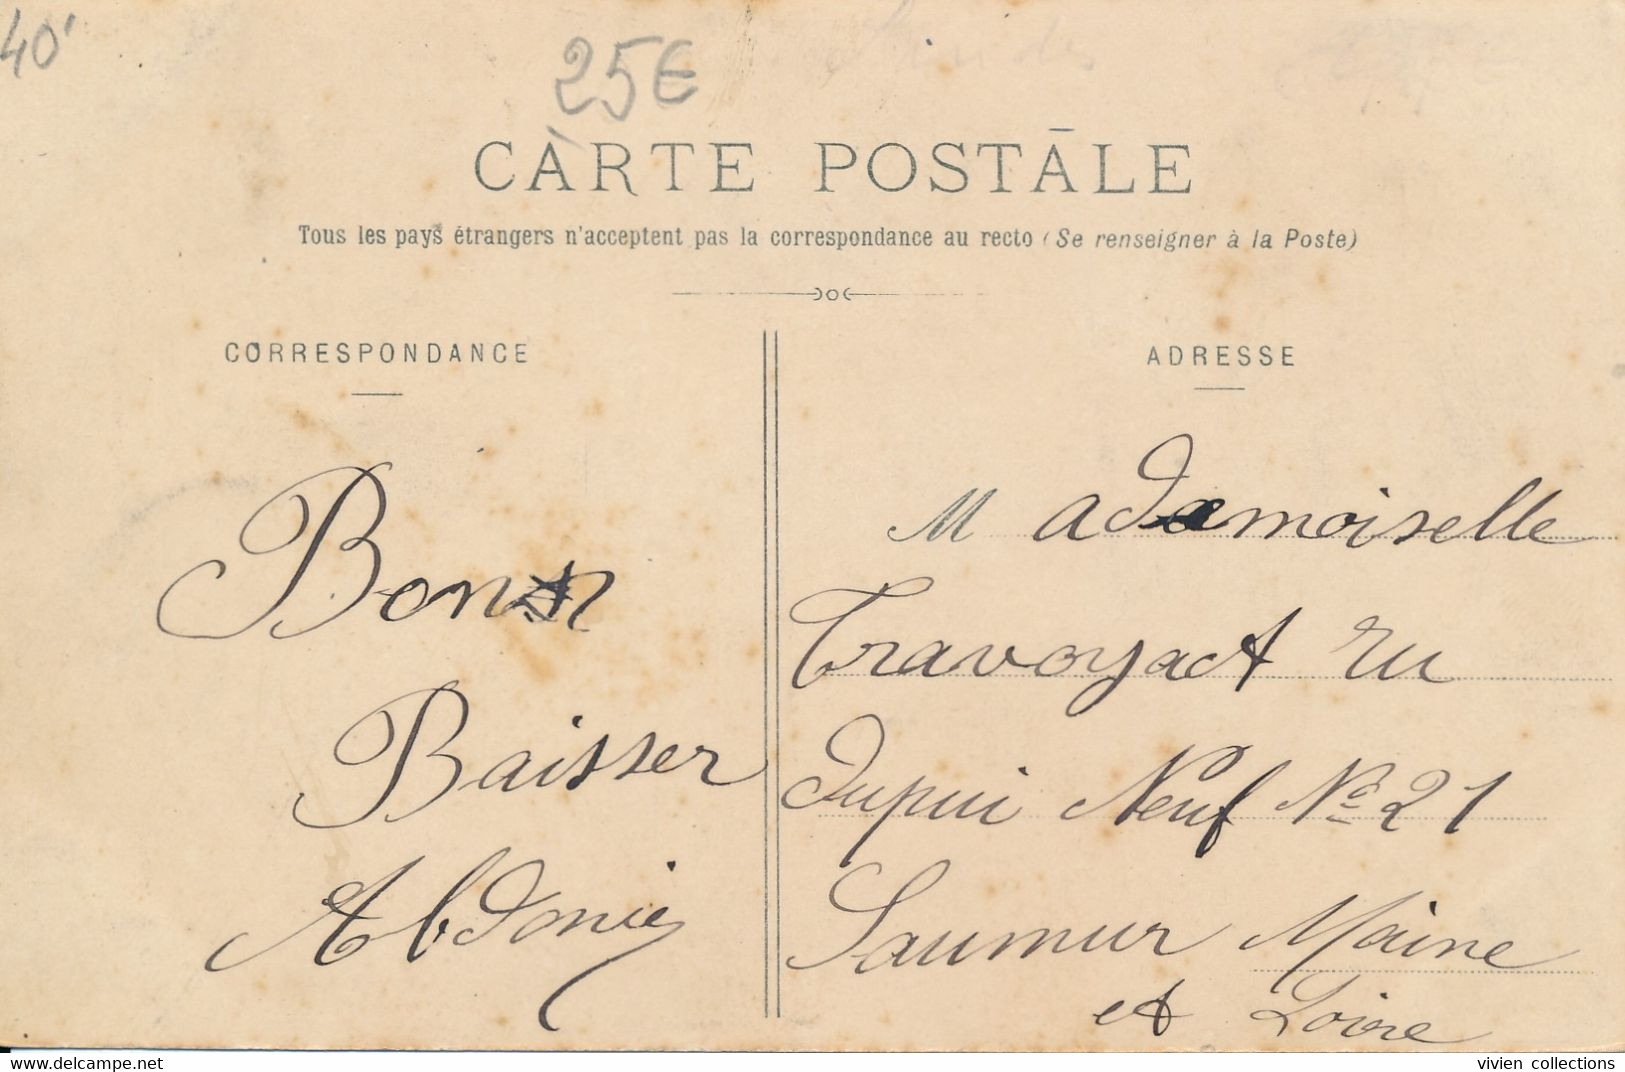 40'
25€
CARTE POSTALE
Tous les pays étrangers n'acceptent pas la correspondance au recto (Se renseigner à la Poste)
CORRESPONDANCE
ADRESSE
Bon
Baisser
Abdonie
Mademoiselle
Travoyact ru
Dupui Neuf No 21
Saumur Maine
et Loire
vivien collections